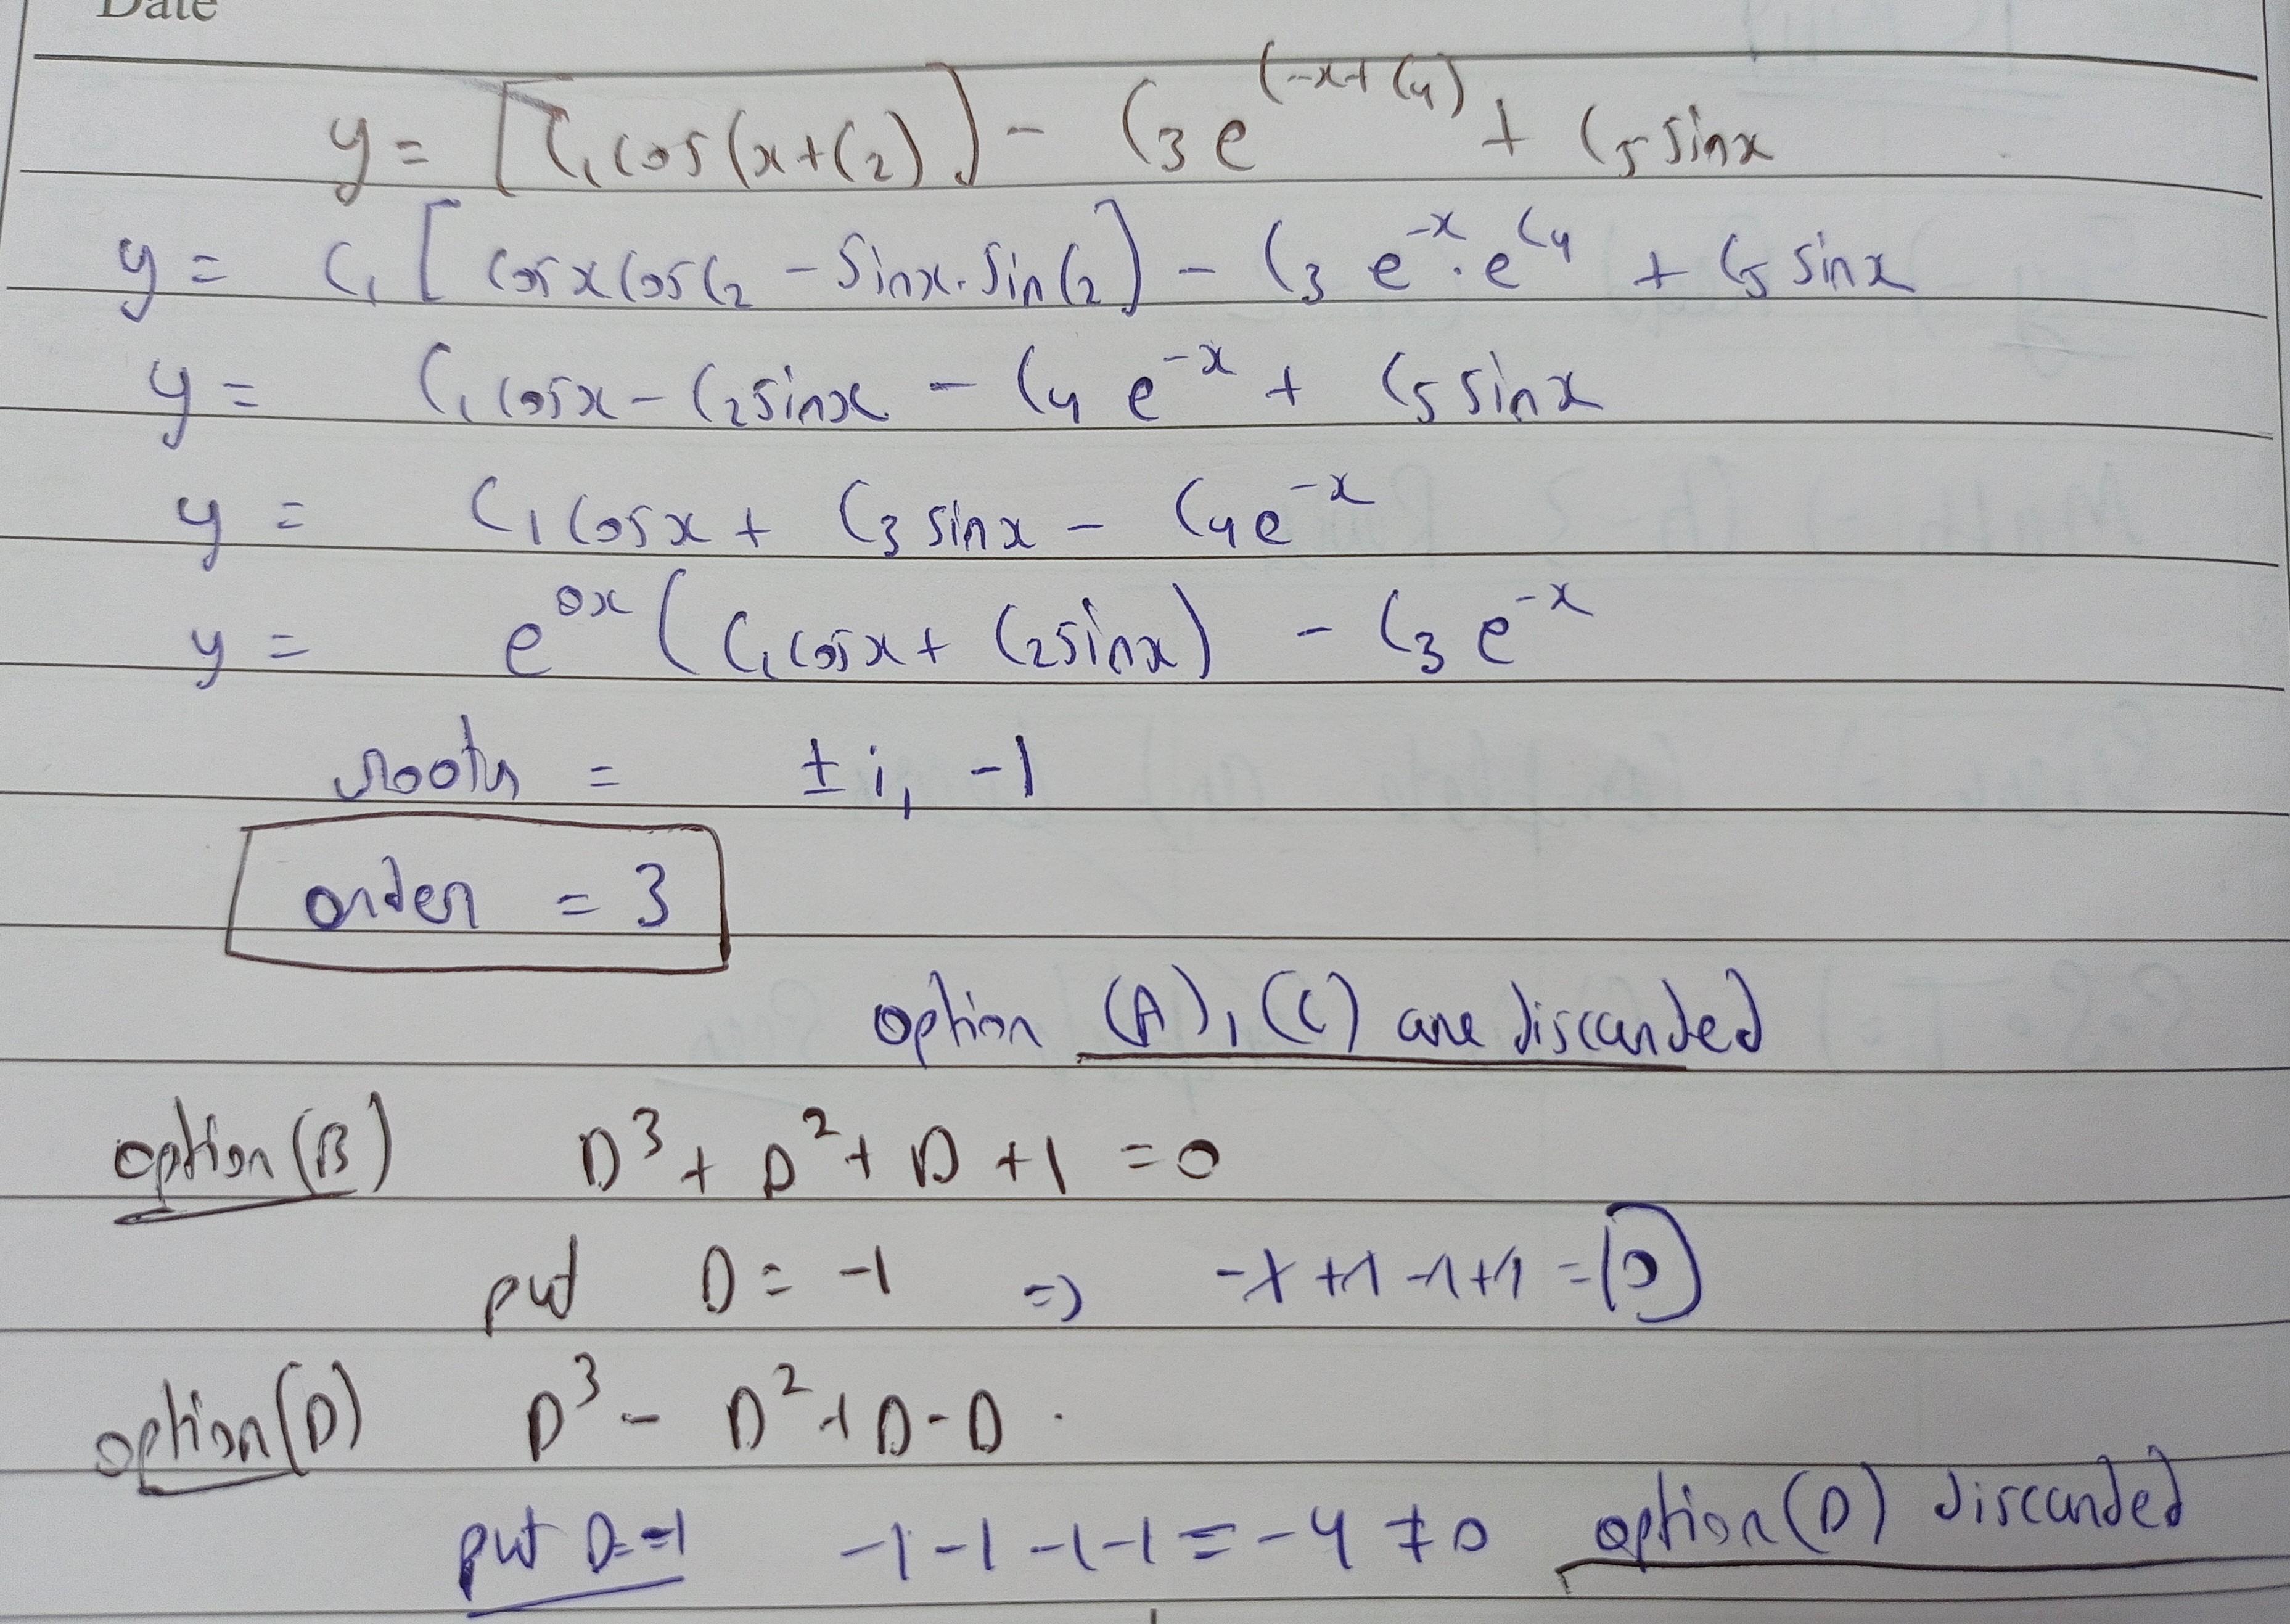 Date
y = [C₁cos(x+C₂)] - C₃e^(-x+C₄) + C₅sinx
y = C₁[cosxcosC₂ - Sinx.SinC₂] - C₃e^-x.e^C₄ + C₅sinx
y = C₁cosx - C₂sinx - C₄e^-x + C₅sinx
y = C₁cosx + C₃sinx - C₄e^-x
y = e^0x(C₁cosx + C₂sinx) - C₃e^-x
roots = ± i, -1
order = 3
option (A), (C) are discarded
option(B) D³ + D² + D + 1 = 0
put D = -1 => -1 + 1 - 1 + 1 = 0
option(D) D³ - D² + D - D .
put D = -1 -1 - 1 - 1 - 1 = -4 ≠ 0 option(D) discarded